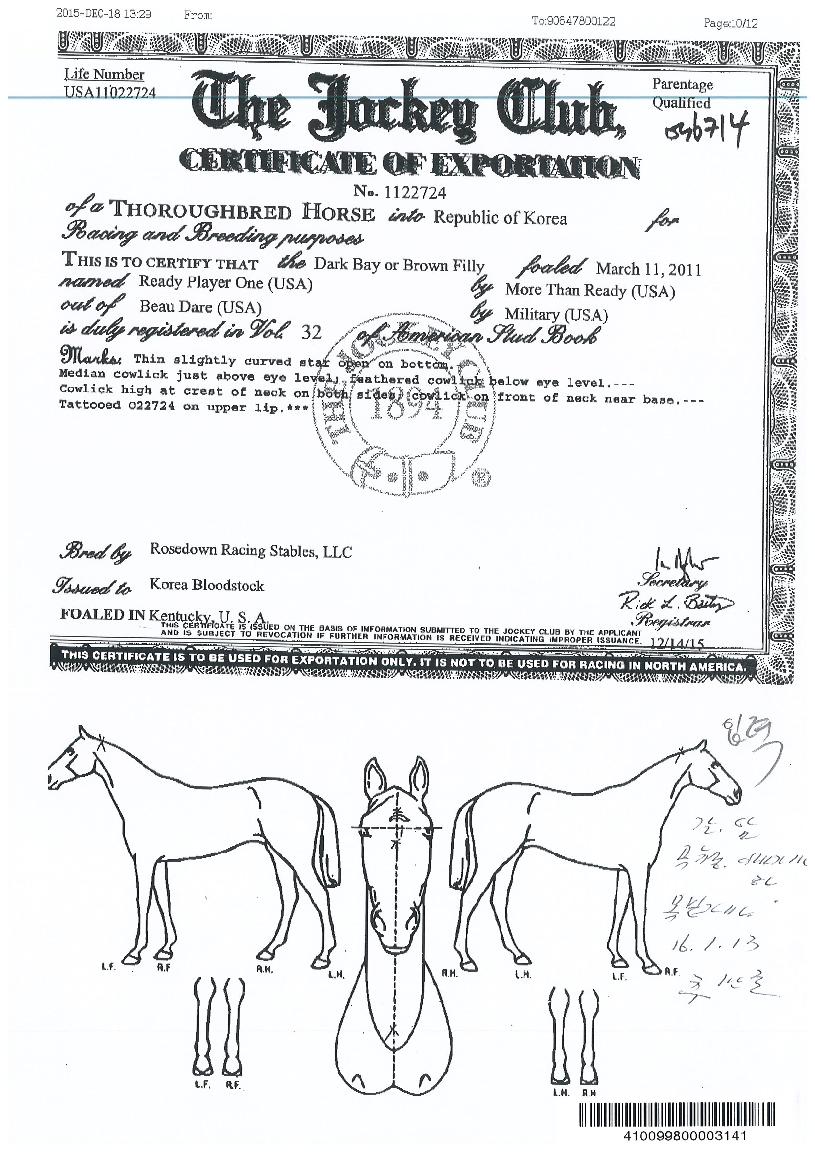 2015-DEC-18 13:29 From: To:90647800122 Page:10/12
Life Number
USA11022724
The Jockey Club,
Parentage
Qualified
046714
CERTIFICATE OF EXPORTATION
No. 1122724
of a THOROUGHBRED HORSE into Republic of Korea for
Racing and Breeding purposes
THIS IS TO CERTIFY THAT the Dark Bay or Brown Filly foaled March 11, 2011
named Ready Player One (USA) by More Than Ready (USA)
out of Beau Dare (USA) by Military (USA)
is duly registered in Vol. 32 of American Stud Book
Marks: Thin slightly curved star open on bottom.
Median cowlick just above eye level; feathered cowlick below eye level.---
Cowlick high at crest of neck on both sides; cowlick on front of neck near base.---
Tattooed 022724 on upper lip.***
THE JOCKEY CLUB
1894
®
Bred by Rosedown Racing Stables, LLC
Issued to Korea Bloodstock
Secretary
Registrar
FOALED IN Kentucky, U. S. A.
THIS CERTIFICATE IS ISSUED ON THE BASIS OF INFORMATION SUBMITTED TO THE JOCKEY CLUB BY THE APPLICANT
AND IS SUBJECT TO REVOCATION IF FURTHER INFORMATION IS RECEIVED INDICATING IMPROPER ISSUANCE. 12/14/15
THIS CERTIFICATE IS TO BE USED FOR EXPORTATION ONLY. IT IS NOT TO BE USED FOR RACING IN NORTH AMERICA.
16.1.13
L.F. R.F. R.H. L.H. R.H. L.H. L.F. R.F.
L.F. R.F. L.H. R.H
410099800003141